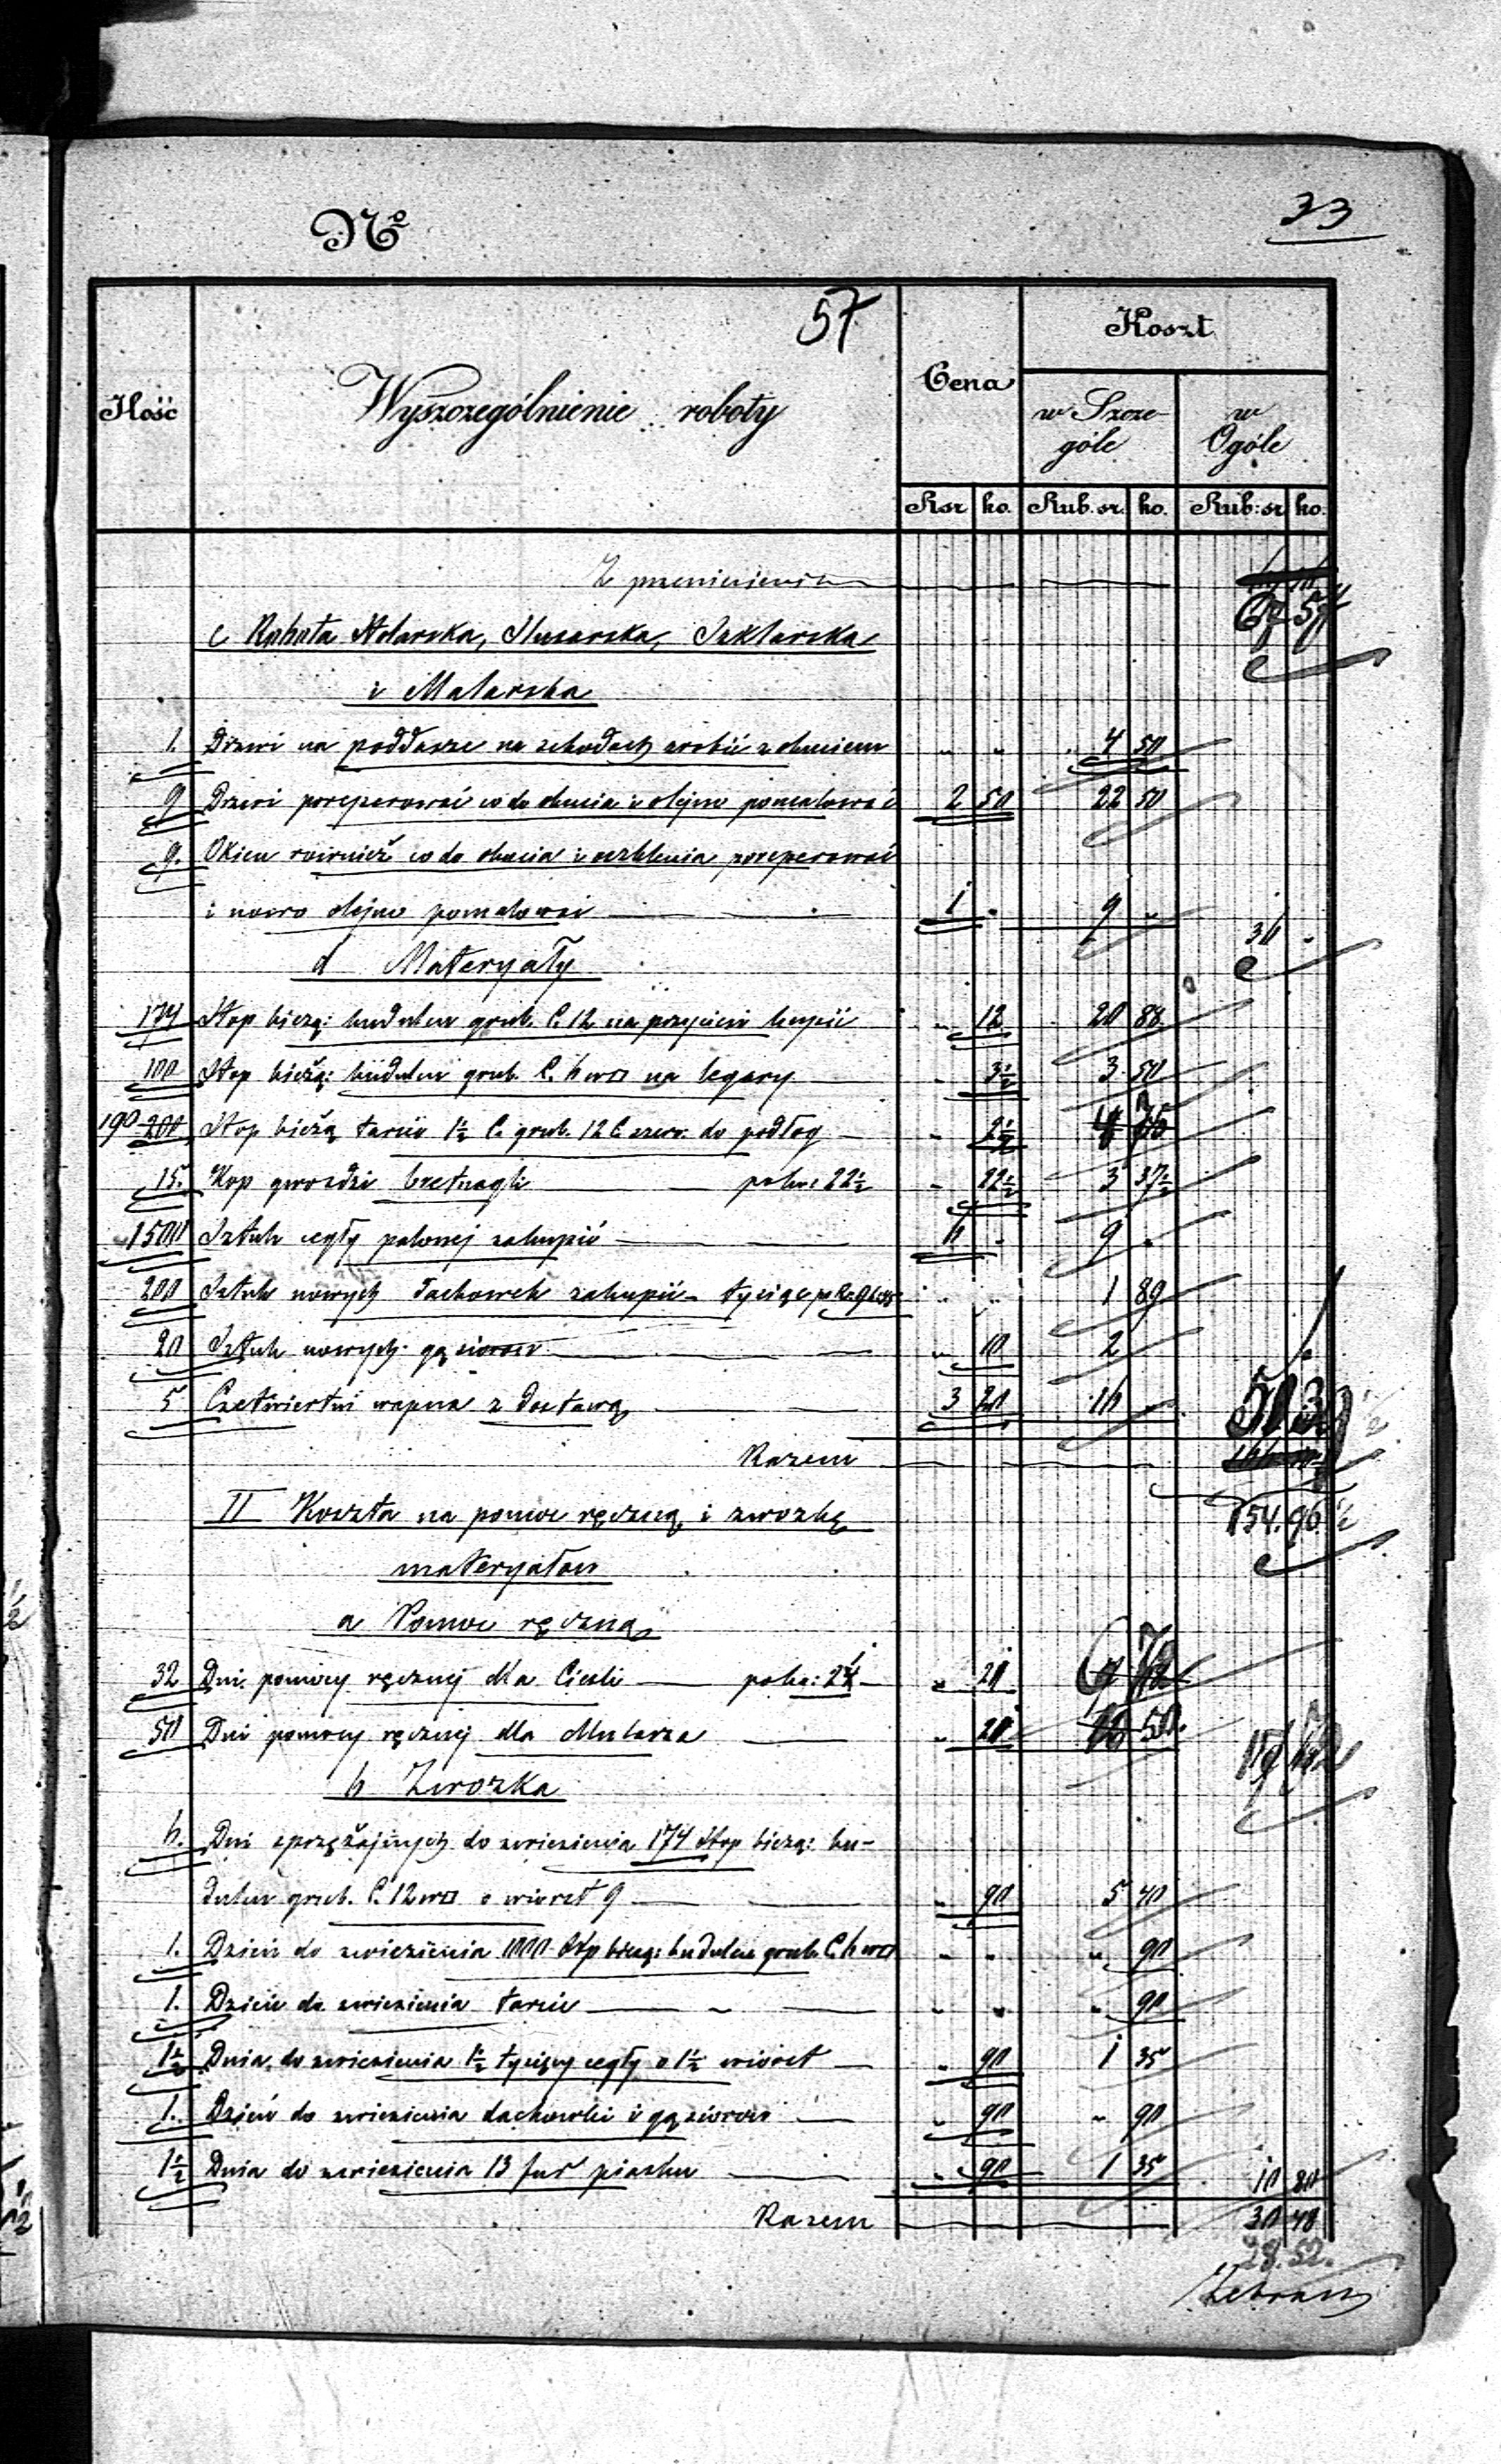 №
33
57
Ilość
Wyszczególnienie roboty
Cena
Koszt
w Szcze-
góle
w
Ogóle
Rsr ko. Rub. sr. ko. Rub: sr ko.
Z przeniesienia
67 57
c Robota Stolarska, Slusarska, Szklarska
i Malarska
1. Drzwi na poddasze na schodach zrobić z okuciem " " " 4 50
9 Drzwi poreperować co do okucia i olejno pomalować 2 50 22 50
9. Okien również co do okucia i oszklenia poreperować
i nowo olejno pomalować 1 " 9 "
36 "
d Materyały
174 Stop bieżą: budulcu grub. C. 12 na przyciesi kupić " 12 20 88
100 Stop bieżą: budulcu grub. C. 6 na legary " 3½ 3 50
190 200 Stop bieżą tarcic 1½ C. grub. 12 C. szer. do podłog " 2½ 4 75
15. Kop gwozdzi bretnagli po ko: 22½ " 22½ 3 37½
1500 Sztuk cegły palonej zakupić 6 " 9 "
200 Sztuk nowych dachowek zakupić tysiąc po Rs 9 " " 1 89
20 Sztuk nowych gąsiorow " 10 2
5 Czetwiertni wapna z dostawą 3 20 16
Razem
154. 96 ½
II Koszta na pomoc ręczną i zwozkę
materyałow
a Pomoc ręczna
32 Dni pomocy ręcznej dla Ciesli po ko: 21 " 21 6 72
50 Dni pomocy ręcznej dla Mularza " 50
b Zwozka
6. Dni sprzężajnych do zwiezienia 174 Stop bieżą: bu-
dulcu grub. C. 12 o wiorst 9 " 90 5 40
1. Dzień do zwiezienia 100 Stop bieżą: budulcu grub. C. 6 " " " 90
1. Dzień do zwiezienia tarcic " " " 90
1½ Dnia do zwiezienia 1½ tysięcy cegły o 1½ wiorst " 90 1 35
1. Dzień do zwiezienia dachowki i gąsiorow " 90 " 90
1½ Dnia do zwiezienia 13 fur piasku " 90 1 35 10 80
Razem 30 48
28. 52.